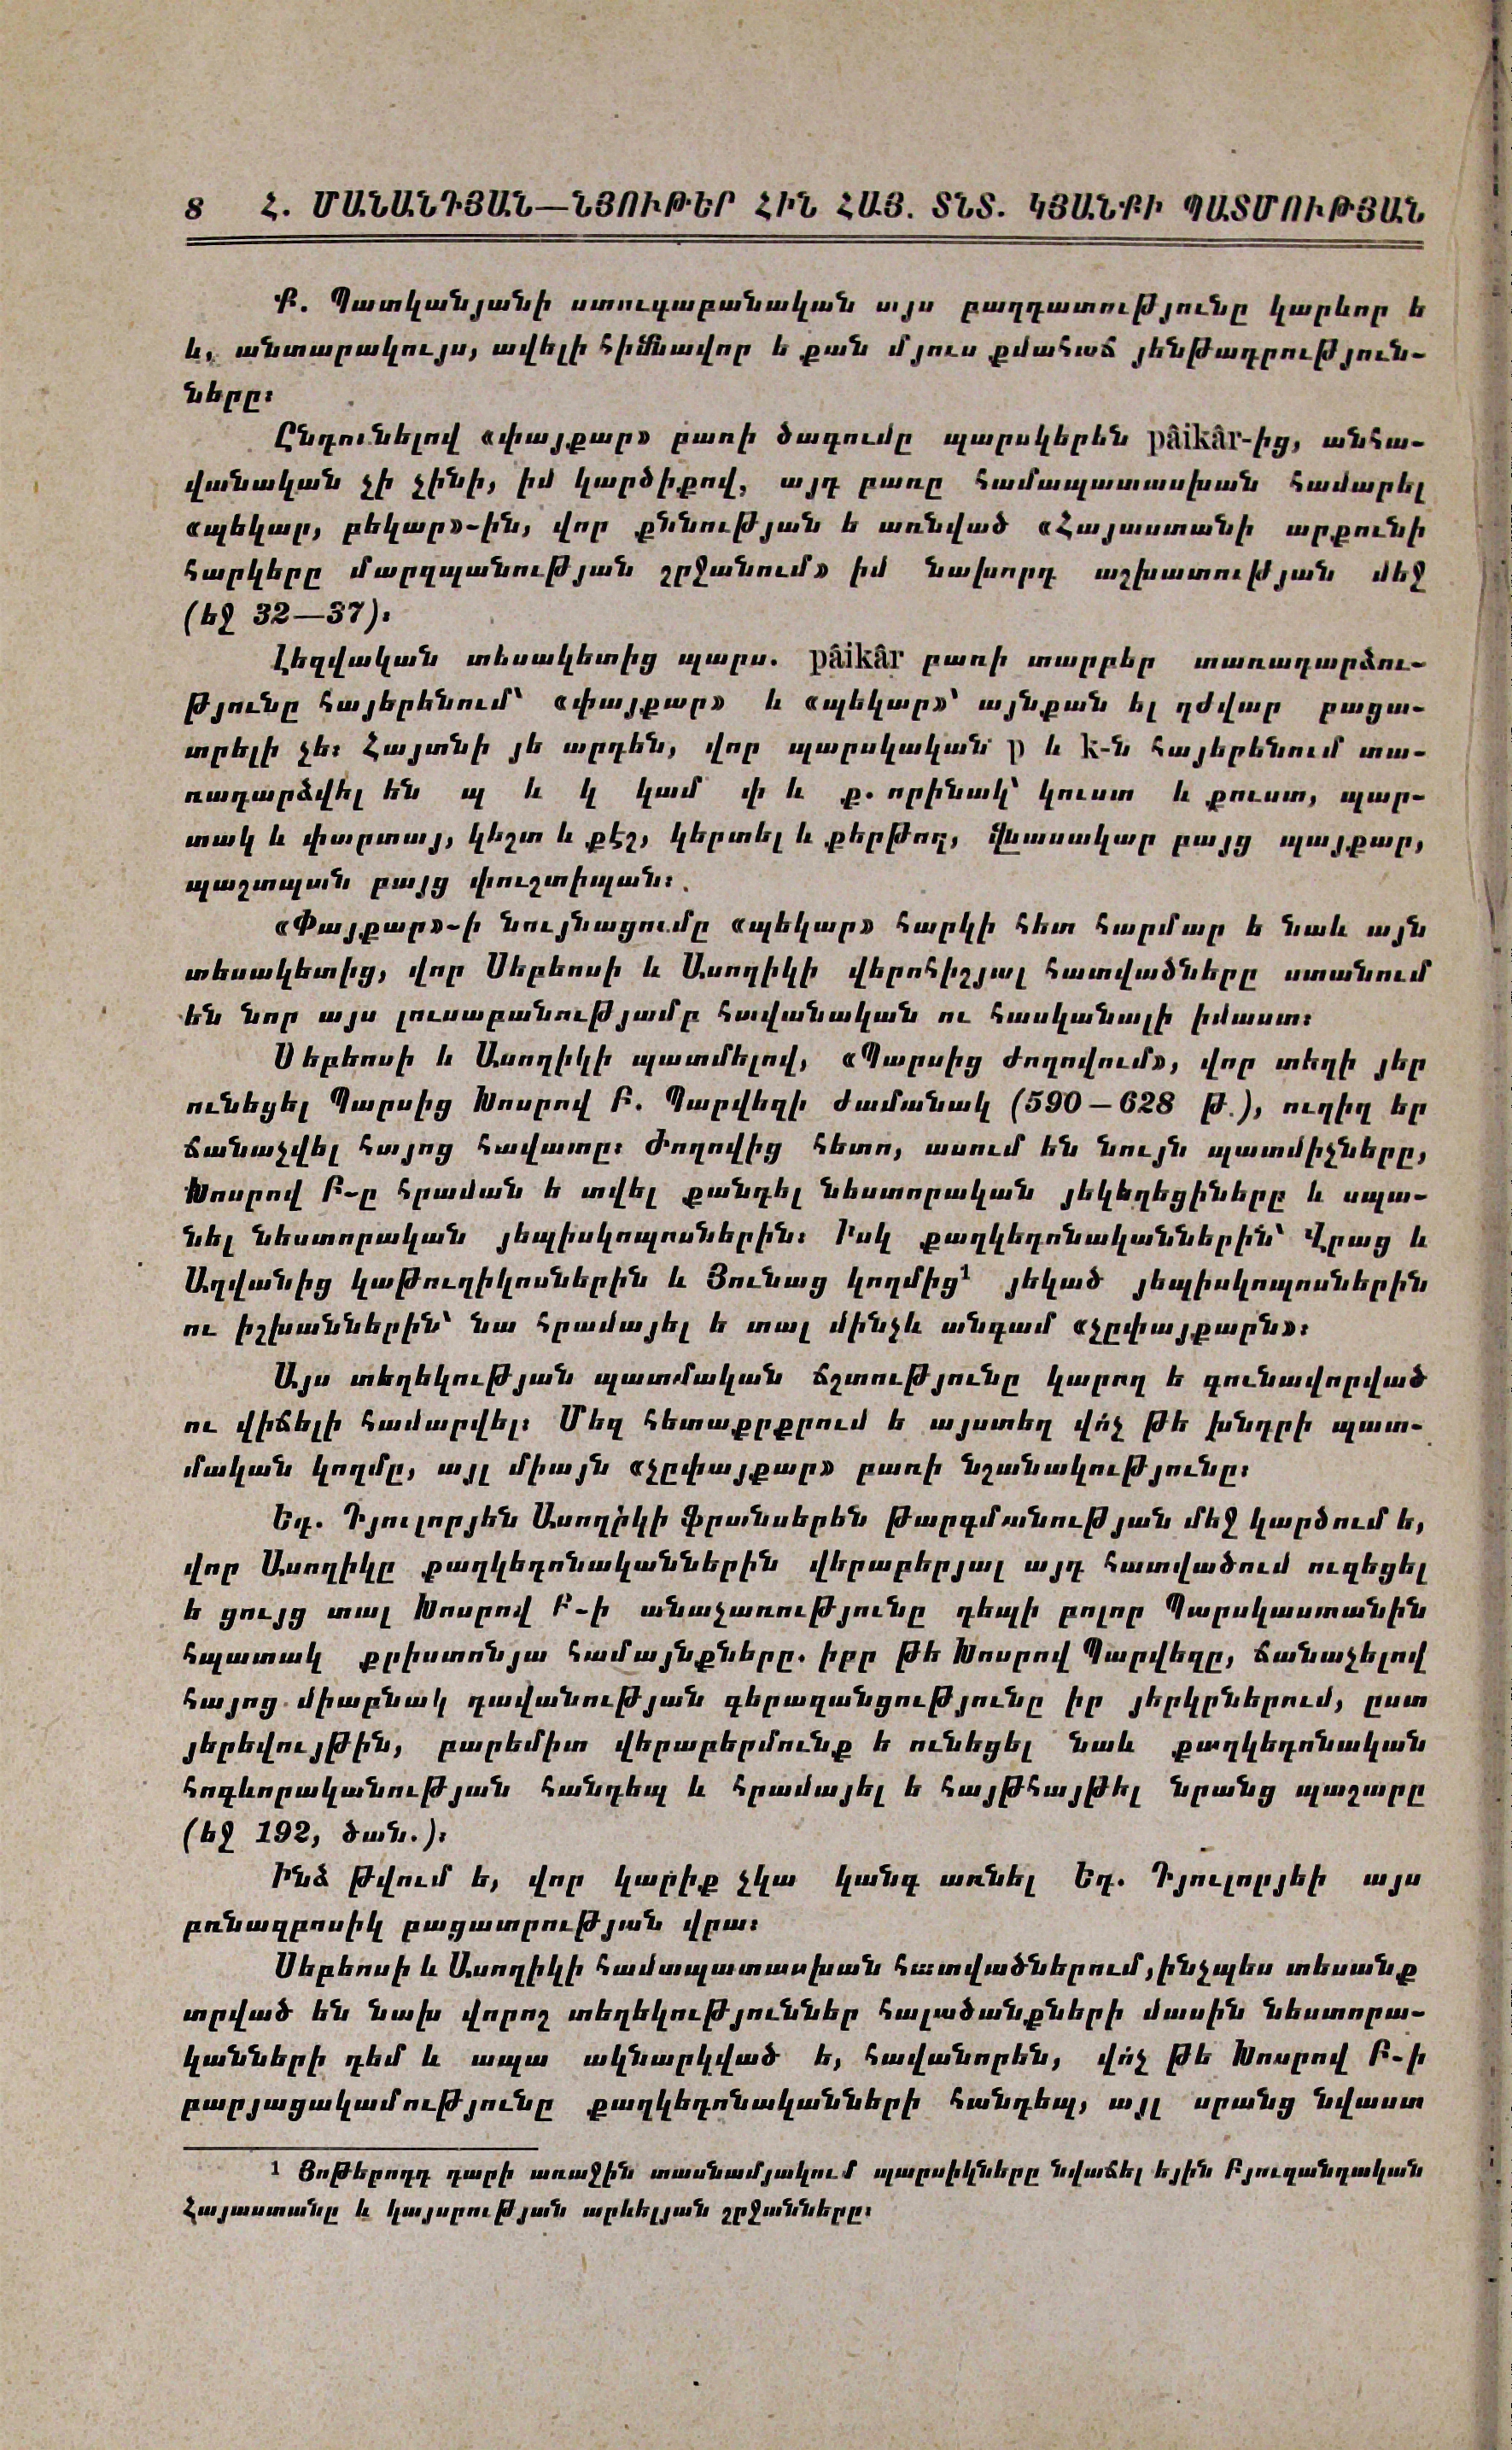 8 Հ. ՄԱՆԱՆԴՅԱՆ—ՆՅՈՒԹԵՐ ՀԻՆ ՀԱՅ. ՏՆՏ. ԿՅԱՆՔԻ ՊԱՏՄՈՒԹՅԱՆ
Ք. Պատկանյանի ստուգաբանական այս բաղդատությունը կարևոր ե
և, անտարակույս, ավելի հիմնավոր ե քան մյուս քմահաճ յենթադրություն-
ները։
Ընդունելով «փայքար» բառի ծագումը պարսկերեն pâikâr-ից, անհա-
վանական չի չինի, իմ կարծիքով, այդ բառը համապատասխան համարել
«պեկար, բեկար»-ին, վոր քննության ե առնված «Հայաստանի արքունի
հարկերը մարզպանության շրջանում» իմ նախորդ աշխատության մեջ
(եջ 32—37)։
Լեզվական տեսակետից պարս. pâikâr բառի տարբեր տառադարձու-
թյունը հայերենում՝ «փայքար» և «պեկար»՝ այնքան ել դժվար բացա-
տրելի չե։ Հայտնի յե արդեն, վոր պարսկական p և k-ն հայերենում տա-
ռադարձվել են պ և կ կամ փ և ք. որինակ՝ կուստ և քուստ, պար-
տակ և փարտայ, կեշտ և քէշ, կերտել և քերթող, վնասակար բայց պայքար,
պաշտպան բայց փուշտիպան։
«Փայքար»-ի նույնացումը «պեկար» հարկի հետ հարմար ե նաև այն
տեսակետից, վոր Սեբեոսի և Ասողիկի վերոհիշյալ հատվածները ստանում
են նոր այս լուսաբանությամբ հավանական ու հասկանալի իմաստ։
Սեբեոսի և Ասողիկի պատմելով, «Պարսից ժողովում», վոր տեղի յեր
ունեցել Պարսից Խոսրով Բ. Պարվեզի ժամանակ (590—628 թ.), ուղիղ եր
ճանաչվել հայոց հավատը։ Ժողովից հետո, ասում են նույն պատմիչները,
Խոսրով Բ-ը հրաման ե տվել քանդել նեստորական յեկեղեցիները և սպա-
նել նեստորական յեպիսկոպոսներին։ Իսկ քաղկեդոնականներին՝ Վրաց և
Աղվանից կաթուղիկոսներին և Յունաց կողմից¹ յեկած յեպիսկոպոսներին
ու իշխաններին՝ նա հրամայել ե տալ մինչև անգամ «չըփայքարն»։
Այս տեղեկության պատմական ճշտությունը կարող ե գունավորված
ու վիճելի համարվել։ Մեզ հետաքրքրում ե այստեղ վո՛չ թե խնդրի պատ-
մական կողմը, այլ միայն «չըփայքար» բառի նշանակությունը։
Եդ. Դյուլորյեն Ասողիկի ֆրանսերեն թարգմանության մեջ կարծում ե,
վոր Ասողիկը քաղկեդոնականներին վերաբերյալ այդ հատվածում ուզեցել
ե ցույց տալ Խոսրով Բ-ի անաչառությունը դեպի բոլոր Պարսկաստանին
հպատակ քրիստոնյա համայնքները. իբր թե Խոսրով Պարվեզը, ճանաչելով
հայոց միաբնակ դավանության գերազանցությունը իր յերկրներում, ըստ
յերեվույթին, բարեմիտ վերաբերմունք ե ունեցել նաև քաղկեդոնական
հոգևորականության հանդեպ և հրամայել ե հայթհայթել նրանց պաշարը
(եջ 192, ծան.)։
Ինձ թվում ե, վոր կարիք չկա կանգ առնել Եդ. Դյուլորյեի այս
բռնազբոսիկ բացատրության վրա։
Սեբեոսի և Ասողիկի համապատասխան հատվածներում, ինչպես տեսանք
տրված են նախ վորոշ տեղեկություններ հալածանքների մասին նեստորա-
կանների դեմ և ապա ակնարկված ե, հավանորեն, վո՛չ թե Խոսրով Բ-ի
բարյացակամությունը քաղկեդոնականների հանդեպ, այլ սրանց նվաստ
¹ Յոթերորդ դարի առաջին տասնամյակում պարսիկները նվաճել եյին Բյուզանդական
Հայաստանը և կայսրության արևելյան շրջանները։